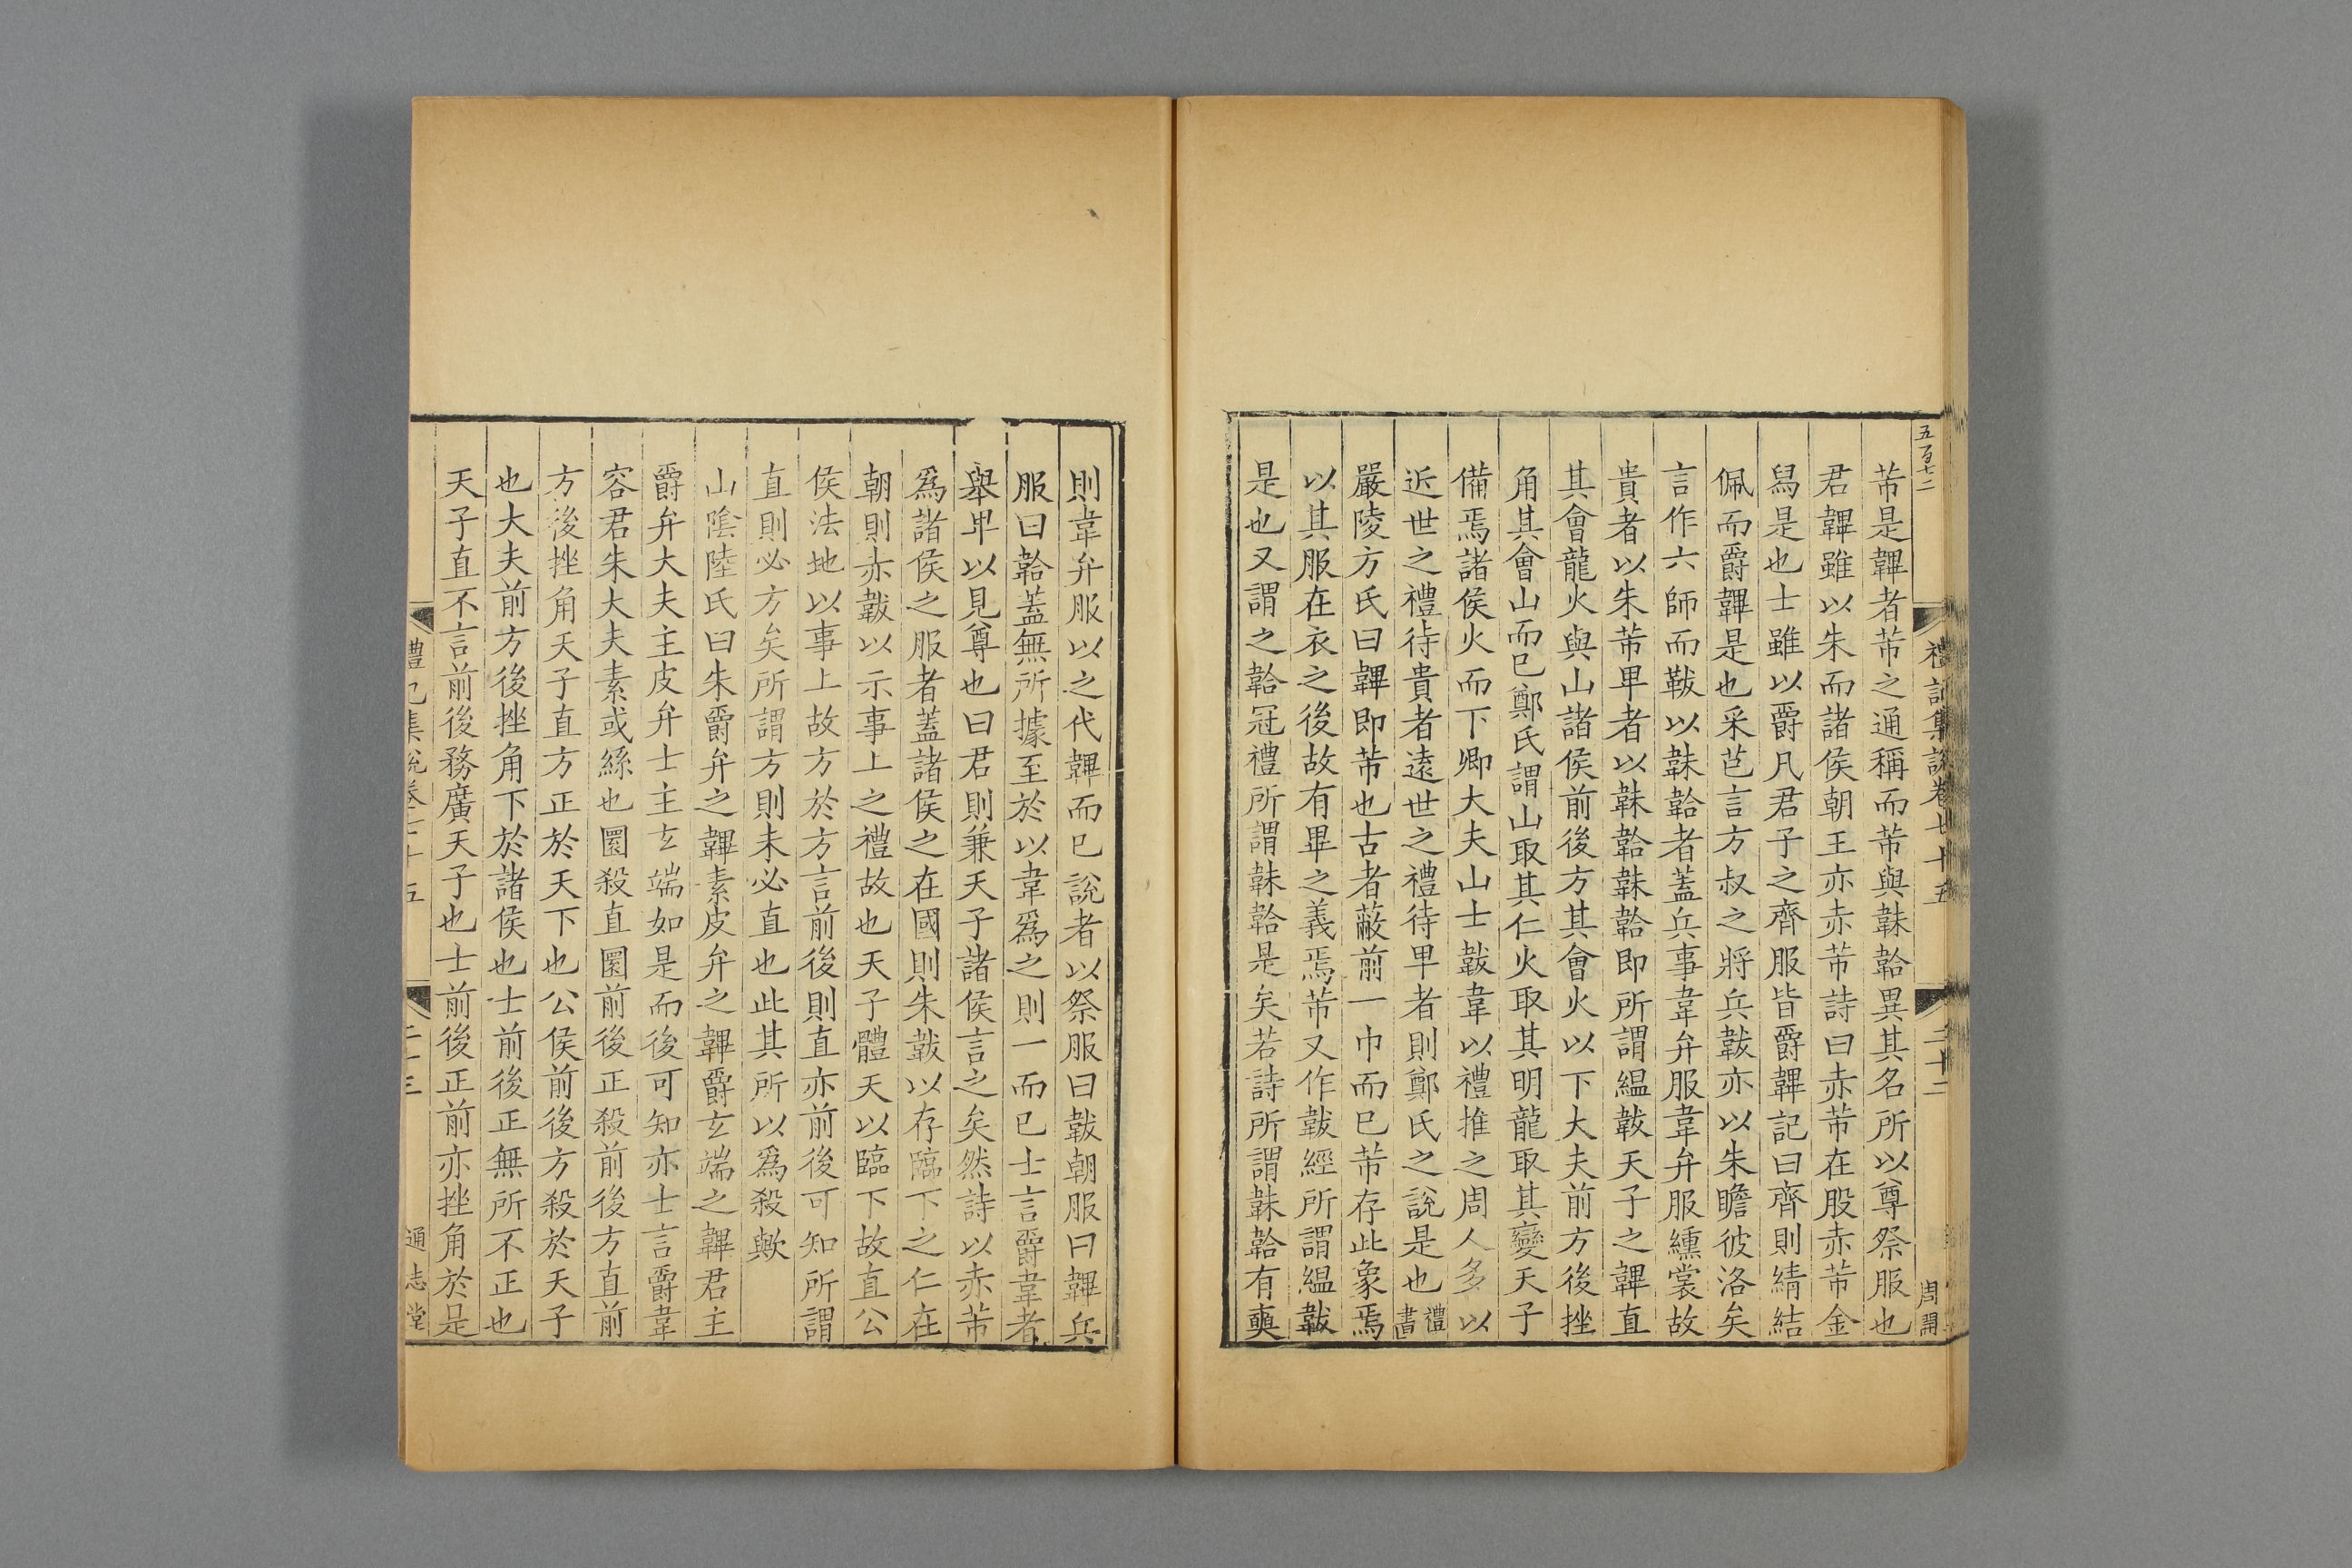 五百七二
禮記集說卷七十五
二十二
周開
芾是韠者芾之通稱而芾與韎韐異其名所以尊祭服也
君韠雖以朱而諸侯朝王亦赤芾詩曰赤芾在股赤芾金
舄是也士雖以爵凡君子之齊服皆爵韠記曰齊則綪結
佩而爵韠是也采芑言方叔之將兵韍亦以朱瞻彼洛矣
言作六師而韍以韎韐者蓋兵事韋弁服韋弁服纁裳故
貴者以朱芾卑者以韎韐韎韐即所謂縕韍天子之韠直
其會龍火與山諸侯前後方其會火以下大夫前方後挫
角其會山而已鄭氏謂山取其仁火取其明龍取其變天子
備焉諸侯火而下卿大夫山士韍韋以禮推之周人多以
近世之禮待貴者遠世之禮待卑者則鄭氏之說是也禮書
嚴陵方氏曰韠即芾也古者蔽前一巾而已芾存此象焉
以其服在衣之後故有畢之義焉芾又作韍經所謂縕韍
是也又謂之韐冠禮所謂韎韐是矣若詩所謂韎韐有奭
則韋弁服以之代韠而已說者以祭服曰韍朝服曰韠兵
服曰韐蓋無所據至於以韋爲之則一而已士言爵韋者
舉卑以見尊也曰君則兼天子諸侯言之矣然詩以赤芾
爲諸侯之服者蓋諸侯之在國則朱韍以存臨下之仁在
朝則赤韍以示事上之禮故也天子體天以臨下故直公
侯法地以事上故方於方言前後則直亦前後可知所謂
直則必方矣所謂方則未必直也此其所以爲殺歟
山陰陸氏曰朱爵弁之韠素皮弁之韠爵玄端之韠君主
爵弁大夫主皮弁士主玄端如是而後可知亦士言爵韋
容君朱大夫素或絲也圜殺直圜前後正殺前後方直前
方後挫角天子直方正於天下也公侯前後方殺於天子
也大夫前方後挫角下於諸侯也士前後正無所不正也
天子直不言前後務廣天子也士前後正前亦挫角於是
禮記集說卷七十五
二十三
通志堂